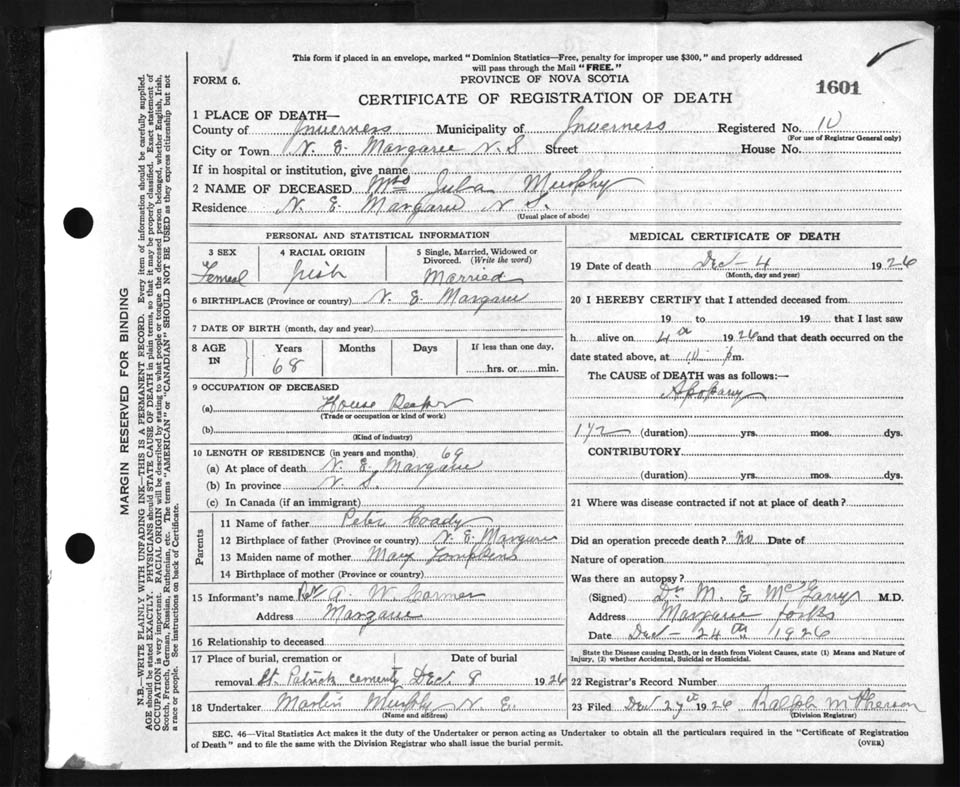 This form if placed in an envelope, marked "Dominion Statistics—Free, penalty for improper use $300," and properly addressed
will pass through the Mail "FREE."
FORM 6.
PROVINCE OF NOVA SCOTIA
1601
CERTIFICATE OF REGISTRATION OF DEATH
1 PLACE OF DEATH—
County of Inverness Municipality of Inverness Registered No. 10
(For use of Registrar General only)
City or Town N. E. Margaree N.S Street House No.
If in hospital or institution, give name
2 NAME OF DECEASED Mrs Julia Murphy
Residence N. E. Margaree N S.
(Usual place of abode)
PERSONAL AND STATISTICAL INFORMATION
3 SEX 4 RACIAL ORIGIN 5 Single, Married, Widowed or
Divorced. (Write the word)
Femeal Irish Married
6 BIRTHPLACE (Province or country) N. E. Margaree
7 DATE OF BIRTH (month, day and year)
8 AGE IN Years Months Days If less than one day,
68 hrs. or min.
9 OCCUPATION OF DECEASED
(a) House Keeper
(Trade or occupation or kind of work)
(b)
(Kind of industry)
10 LENGTH OF RESIDENCE (in years and months) 69
(a) At place of death N. E. Margaree
(b) In province N. S.
(c) In Canada (if an immigrant)
Parents
11 Name of father Peter Coady
12 Birthplace of father (Province or country) N. E. Margaree
13 Maiden name of mother Mary Tompkins
14 Birthplace of mother (Province or country)
15 Informant's name Rev A. W.
Address Margaree
16 Relationship to deceased
17 Place of burial, cremation or Date of burial
removal St. Patrick cementy Dec. 8 1926
18 Undertaker Martin Murphy N. E.
(Name and address)
MEDICAL CERTIFICATE OF DEATH
19 Date of death Dec - 4 1926
(Month, day and year)
20 I HEREBY CERTIFY that I attended deceased from
19 to 19 that I last saw
h alive on 4th 1926 and that death occurred on the
date stated above, at m.
The CAUSE of DEATH was as follows:—
1/2 (duration) yrs. mos. dys.
CONTRIBUTORY
(duration) yrs. mos. dys.
21 Where was disease contracted if not at place of death?
Did an operation precede death? No Date of
Nature of operation
Was there an autopsy?
(Signed) Dr M. E McGarry M.D.
Address Margaree forks
Date Dec - 24th 1926
State the Disease causing Death, or in death from Violent Causes, state (1) Means and Nature of
Injury, (2) whether Accidental, Suicidal or Homicidal.
22 Registrar's Record Number
23 Filed Dec 27th 1926 Ralph McPherson
(Division Registrar)
SEC. 46—Vital Statistics Act makes it the duty of the Undertaker or person acting as Undertaker to obtain all the particulars required in the "Certificate of Registration
of Death" and to file the same with the Division Registrar who shall issue the burial permit.
(OVER)
MARGIN RESERVED FOR BINDING
N.B.—WRITE PLAINLY WITH UNFADING INK—THIS IS A PERMANENT RECORD. Every item of information should be carefully supplied.
AGE should be stated EXACTLY. PHYSICIANS should STATE CAUSE OF DEATH in plain terms, so that it may be properly classified. Exact statement of
OCCUPATION is very important. RACIAL ORIGIN will be described by stating to what people or tongue the deceased person belonged, whether English, Irish,
Scotch, French, German, Russian, Ruthenian, etc. The terms "AMERICAN" or "CANADIAN" SHOULD NOT BE USED as they express citizenship but not
a race or people. See instructions on back of Certificate.